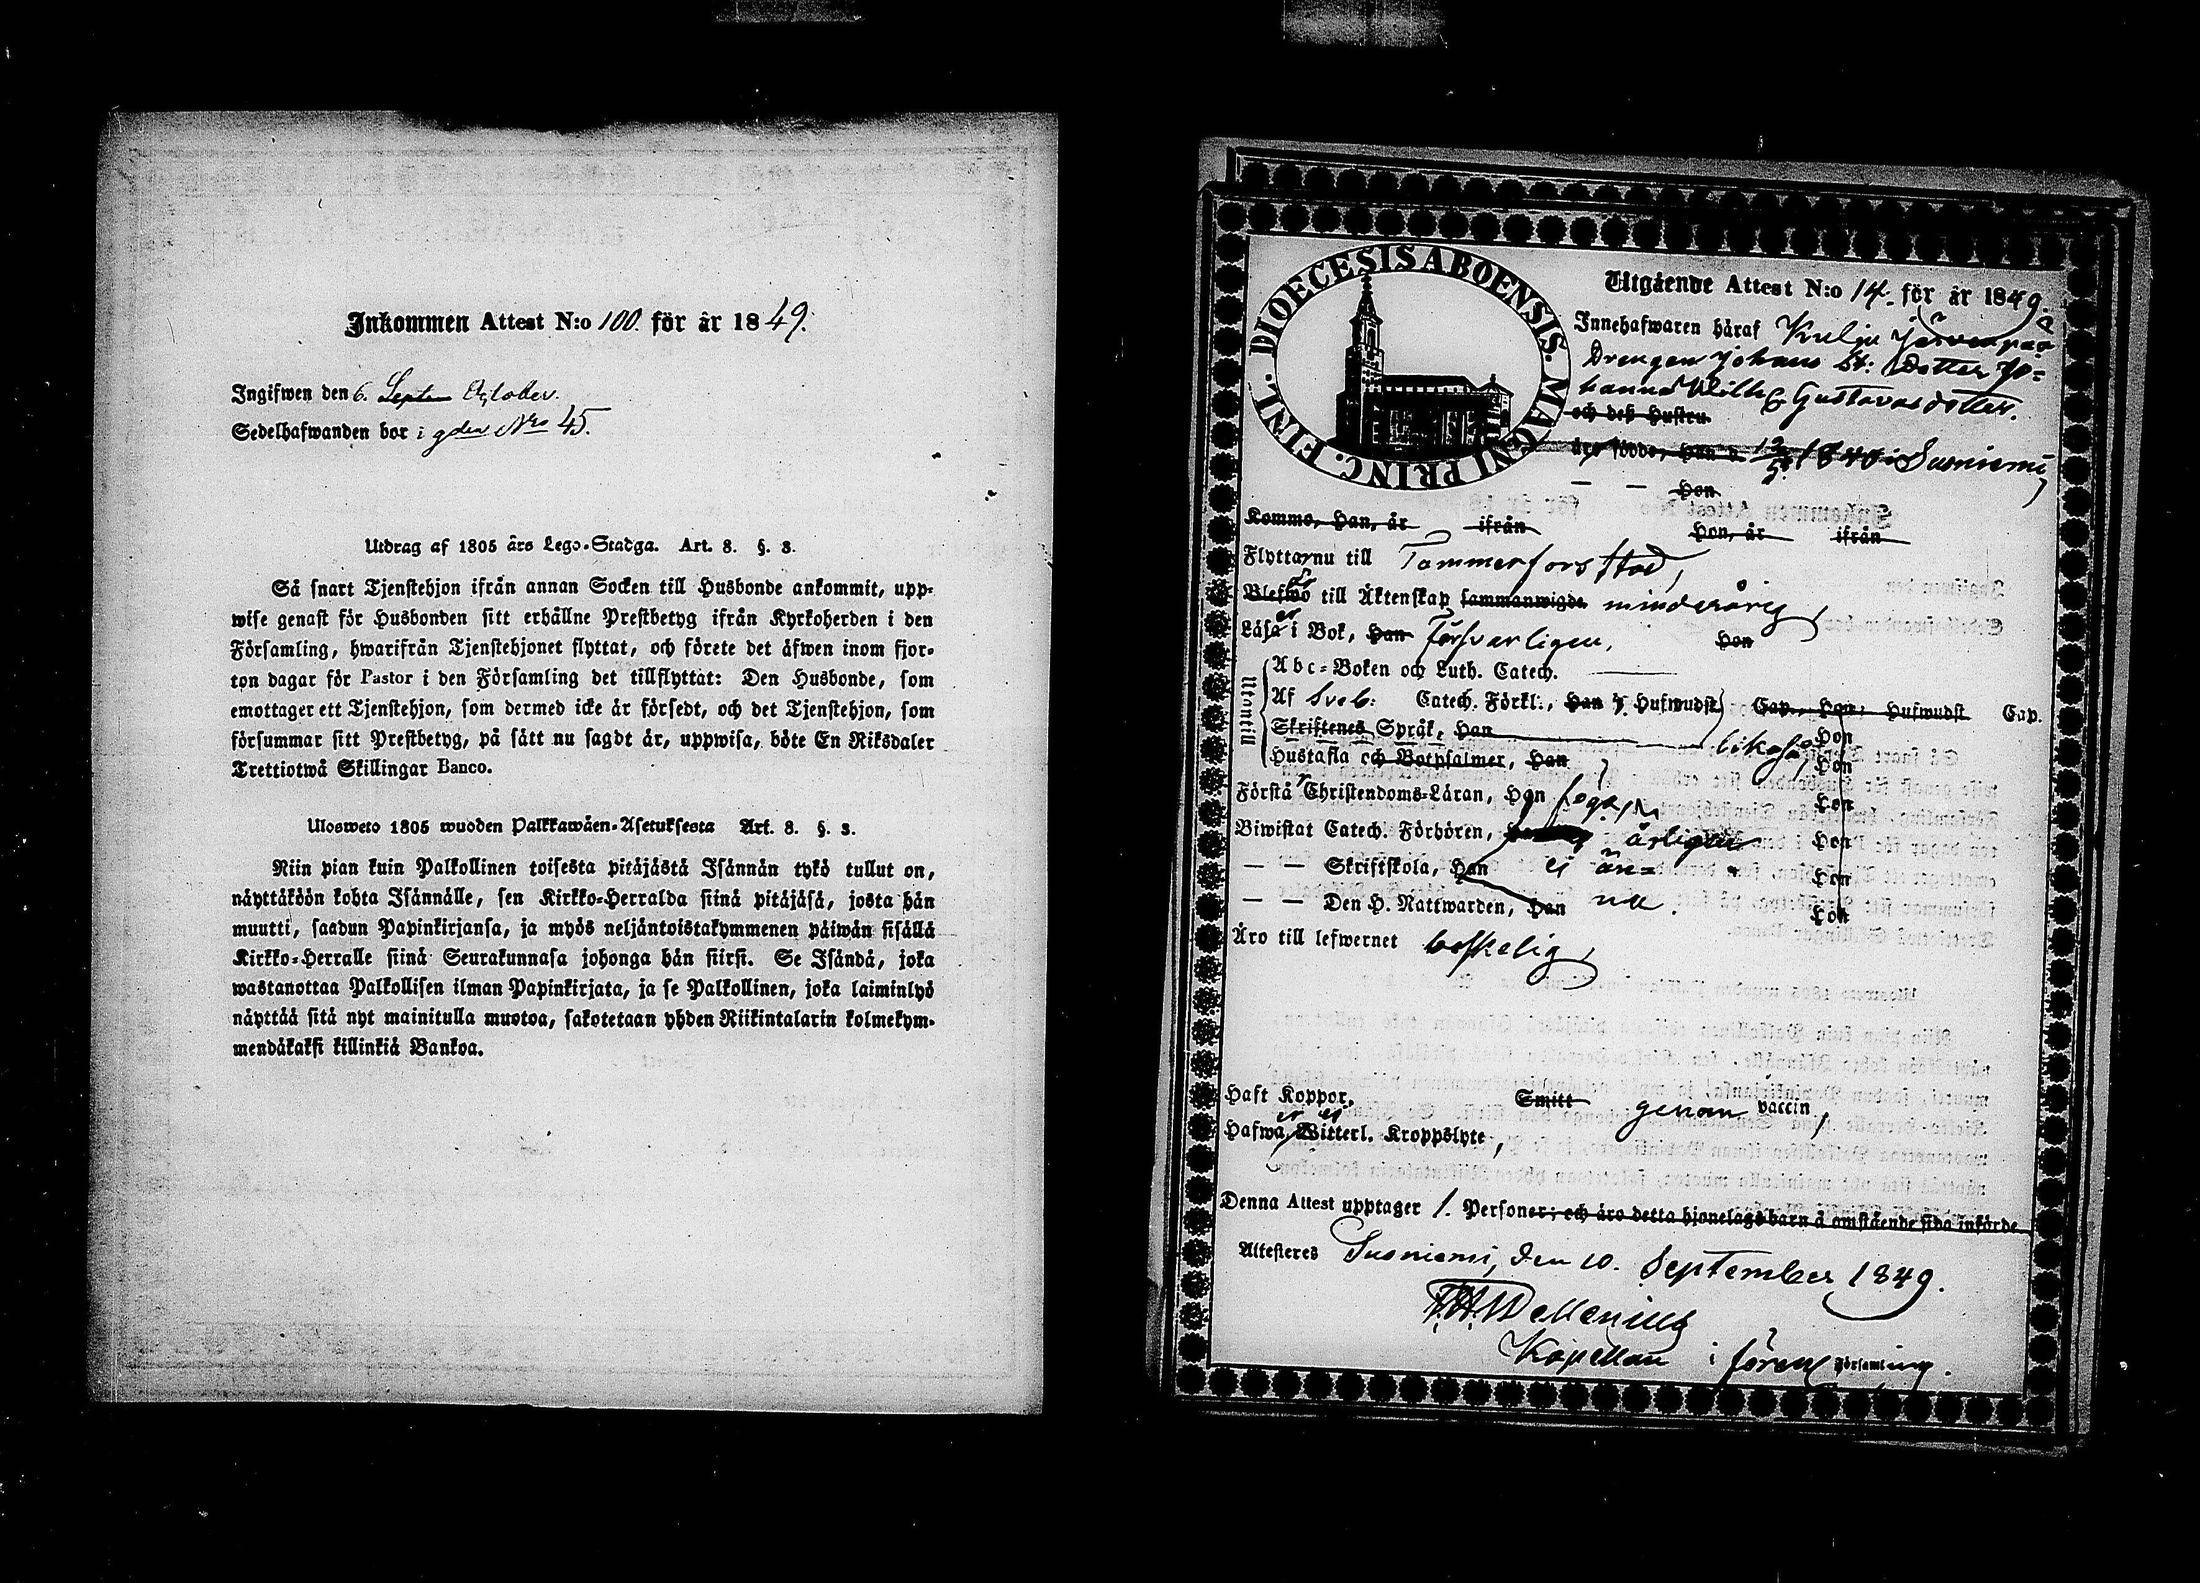 Inkommen Attest N:o 100. för år 1849.
Ingifwen den 6. Septem October.
Sedelhafwanden bor i gden Nro 45.
Utdrag af 1805 års Lego-Stadga. Art. 8. §. 3.
Så snart Tjenstehjon ifrån annan Socken till Husbonde ankommit, upp-
wise genast för Husbonden sitt erhållne Prestbetyg ifrån Kyrkoherden i den
Församling, hwarifrån Tjenstehjonet flyttat, och förete det äfwen inom fjor-
ton dagar för Pastor i den Församling det tillflyttat: Den Husbonde, som
emottager ett Tjenstehjon, som dermed icke är försedt, och det Tjenstehjon, som
försummar sitt Prestbetyg, på sätt nu sagdt är, uppwisa, böte En Riksdaler
Trettiotwå Skillingar Banco.
Ulosweto 1805 wuoden Palkkawäen-Asetuksesta Art. 8. §. 3.
Niin pian kuin Palkollinen toisesta pitäjästä Isännän tykö tullut on,
näyttäköön kohta Isännälle, sen Kirkko-Herralda siinä pitäjäsä, josta hän
muutti, saadun Papinkirjansa, ja myös neljäntoistakymmenen päiwän sisällä
Kirkko-Herralle siinä Seurakunnasa johonga hän siirsi. Se Isändä, joka
wastanottaa Palkollisen ilman Papinkirjata, ja se Palkollinen, joka laiminlyö
näyttää sitä nyt mainitulla muotoa, sakotetaan yhden Riikintalarin kolmekym-
mendäkaksi killinkiä Bankoa.
DIOECESIS ABOENSIS. MAGNI PRINC. FINL.
Utgående Attest N:o 14. för år 1849.
Innehafwaren häraf Kulju Järvenpää
Drengen Johans St: Dotter Jo-
hanna Wilh. Gustavasdotter.
och dess Hustru
äro födde, Han d. 12/5 1840 i Suoniemi,
— — Hon
Kommo, Han, år ifrån Hon, år ifrån
Flytta nu till Tammerfors stad,
Blefwo till Äktenskap sammanwigde minderårig,
Läsa i Bok, Han försvarligen, Hon
Utantill
Abc-Boken och Luth. Catech.
Af Sveb: Catech. Förkl., Han Hufwudst. Cap., Hon, Hufwudst. Cap.
Skriftenes Språk, Han likaså, Hon
Hustafla och Botpsalmer, Han Hon
Förstå Christendoms-Läran, Han Hon
Biwistat Catech. Förhören, årligen Hon
— — Skriftskola, Han ei än= Hon
— — Den H. Nattwarden, Han nu. Hon
Äro till lefwernet beskelig,
Haft Koppor, Smitt genom vaccin,
Hafwa Witterl. Kroppslyte,
Denna Attest upptager 1. Personer; och äro detta hjonelags barn å omstående sida införde
Attesteres Suoniemi, den 10. September 1849.
Kapellan i fören. Församling.